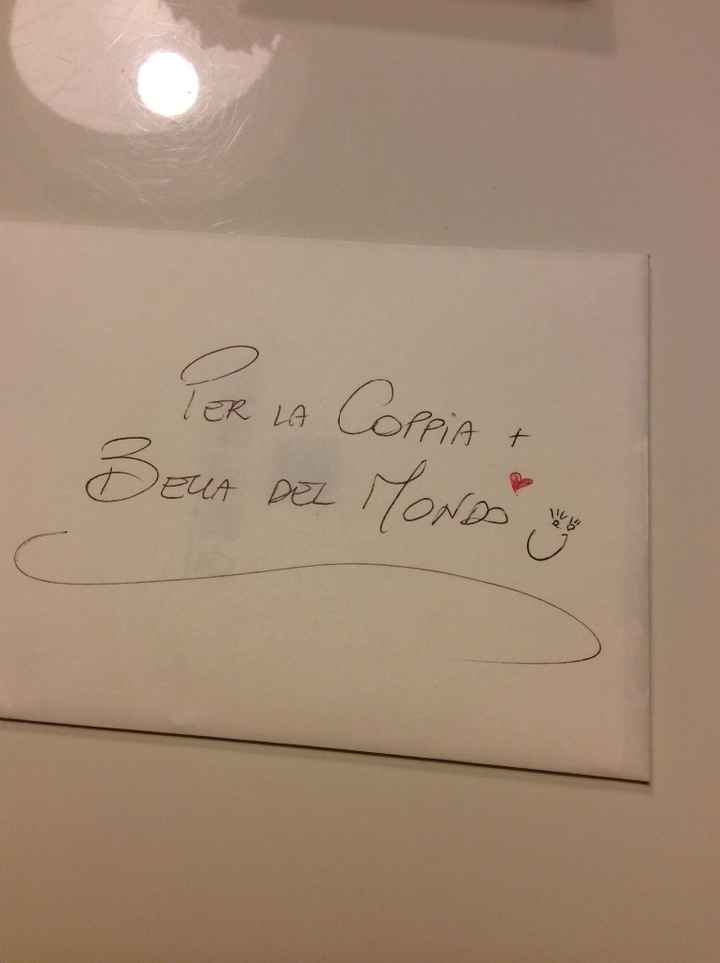 PER LA COPPIA +
BELLA DEL MONDO